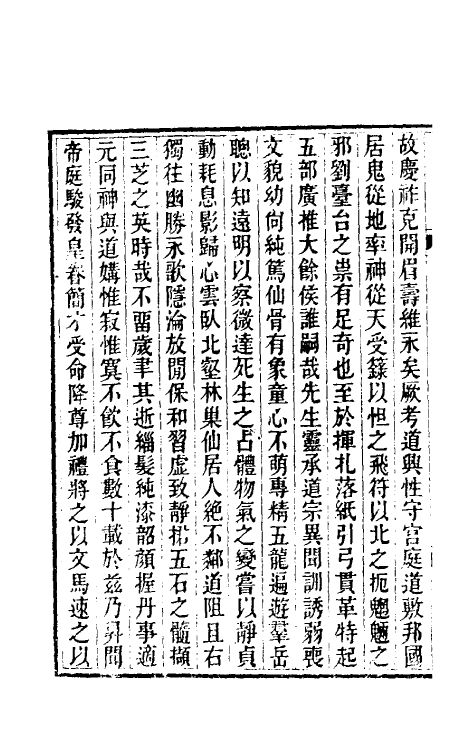 故慶祚克開眉壽維永矣厥考道興性守官庭道敷邦國
居鬼從地率神從天受籙以怛之飛符以北之扼魍魎之
邪劉臺台之祟有足奇也至於揮札落紙引弓貫革特起
五部廣推大餘俟誰嗣哉先生靈承道宗異聞訓誘弱喪
文貌幼尚純篤仙骨有象童心不萌專精五龍遍遊羣岳
聰以知遠明以察微達死生之占體物氣之變嘗以靜貞
動耗息影歸心雲臥北壑林巢仙居人絶不鄰道阻且右
獨往幽勝永歌隱淪放閒保和習虛致靜拾五石之髓擷
三芝之英時哉不畱歲聿其逝緇髮純漆韶顏握丹事適
元同神與道媾惟寂惟寞不飮不食數十載於茲乃昇聞
帝庭駿發皇眷簡才受命降尊加禮將之以文馬速之以